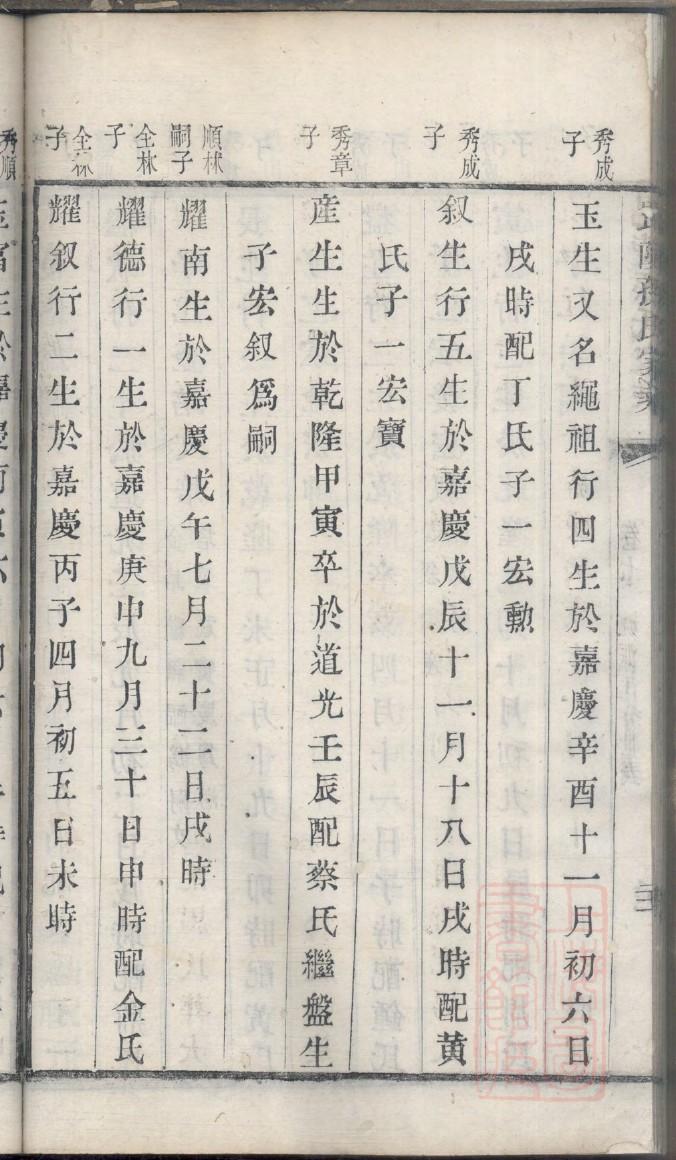 孫氏家
秀成子
玉生又名繩祖行四生於嘉慶辛酉十一月初六日
戌時配丁氏子一宏勳
秀成子
叙生行五生於嘉慶戊辰十一月十八日戌時配黄
氏子一宏寶
秀章子
産生生於乾隆甲寅卒於道光壬辰配蔡氏繼盤生
子宏叙爲嗣
順林嗣子
耀南生於嘉慶戊午七月二十一日戌時
全林子
耀德行一生於嘉慶庚申九月三十日申時配金氏
全林子
耀叙行二生於嘉慶丙子四月初五日未時
秀順